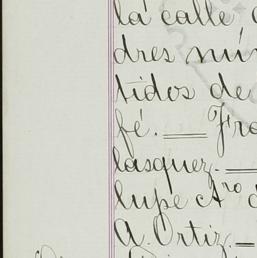 la calle
dres nú
tidos de
fé. — Fra
lasquez. —
lupe A^ro
A. Ortiz. —